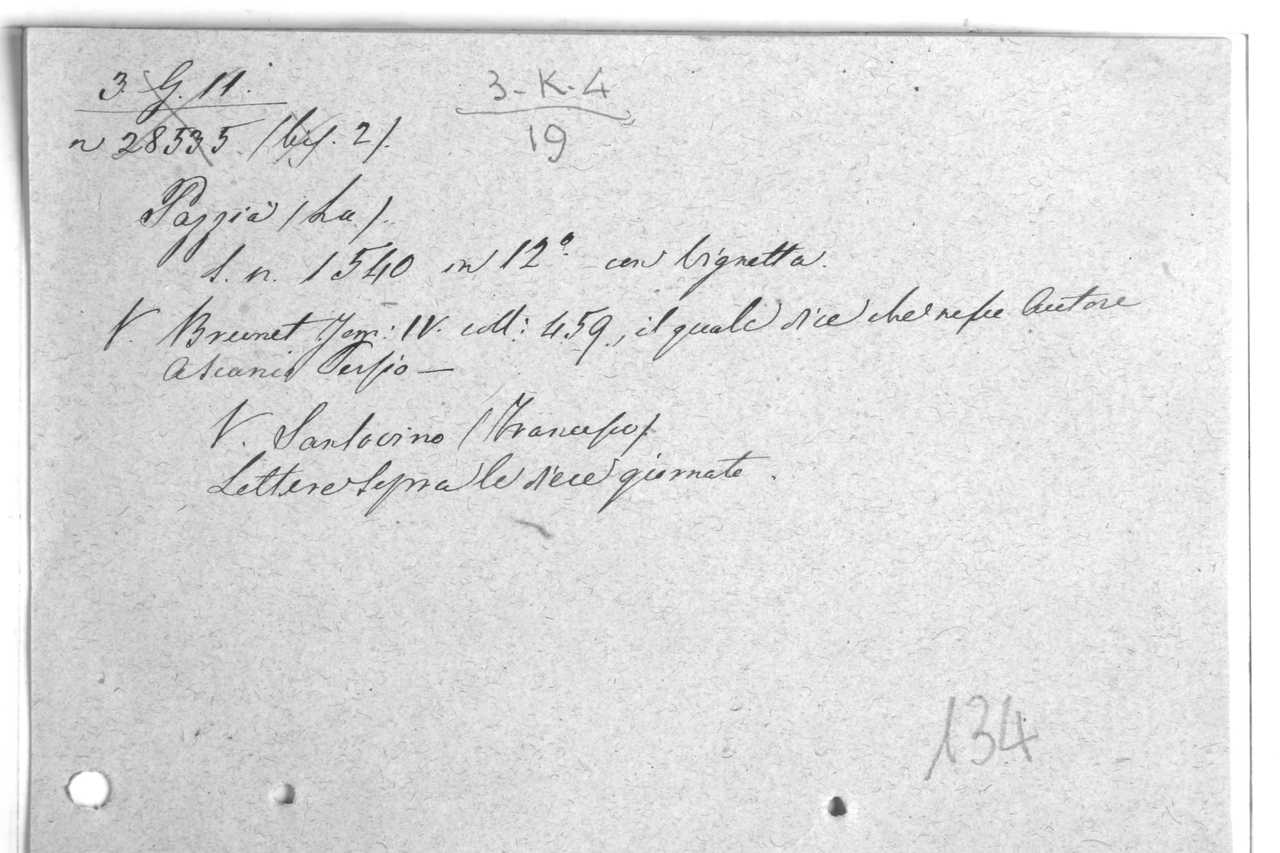 3. G. 11.
3-K-4
19
n 28535 (bis. 2).
Pazzia (La).
s. n. 1540 in 12° con vignetta.
V. Brunet Tom: IV. coll: 459, il quale dice che ne fu Autore
Ascanio Persio —
V. Sansovino (Francesco).
Lettere sopra le diece giornate.
134